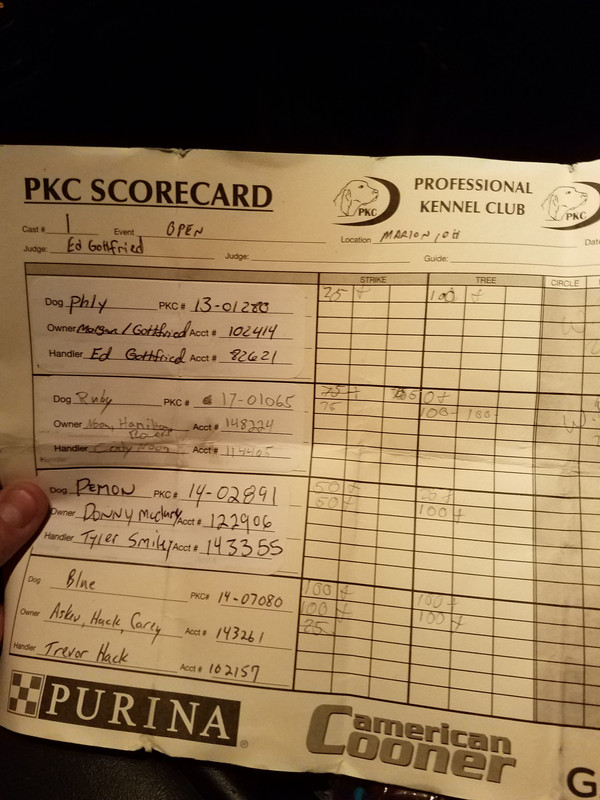 PKC SCORECARD
PKC
PROFESSIONAL
KENNEL CLUB
PKC
Cast # 1 Event OPEN Location MARION, OH Date
Judge: Ed Gottfried Judge: Guide:
STRIKE TREE CIRCLE
Dog Phly PKC# 13-01280 25 + 100 +
Owner Morgan / Gottfried Acct# 102414
Handler Ed Gottfried Acct# 82621
Dog Ruby PKC # 17-01065
Owner Noon, Hamilton Acct# 148224
Handler Acct#
Dog DEMON PKC# 14-02891 50 +
Owner DONNY Acct# 122906 100 +
Handler Tyler Smiley Acct# 143355
Dog Blue PKC# 14-07080 100 + 100 +
Owner Askew, Hack, Carey Acct# 143261 100 + 100 +
Handler Trevor Hack Acct# 102157 25
PURINA
american
Cooner
G